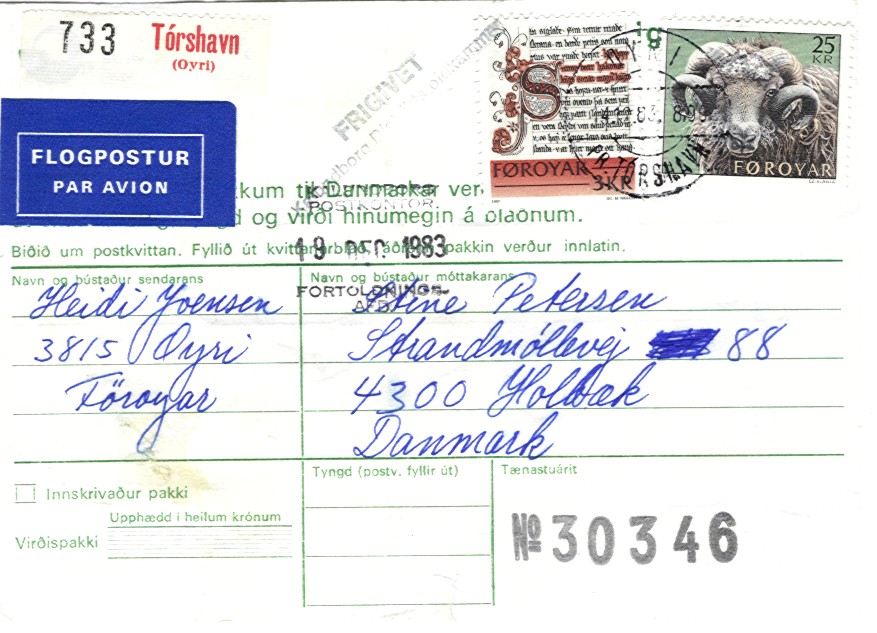 733 Tórshavn
(Oyri)
FRIGIVET
FØROYAR
3KR
25
KR
FØROYAR
TÓRSHAVN
FLOGPOSTUR
PAR AVION
kum til Danmarkar
og virði hinumegin á blaðnum.
POSTKONTOR.
Biðið um postkvittan. Fyllið út pakkin verður innlatin.
19 DEC. 1983
Navn og bústaður sendarans
Navn og bústaður móttakarans
FORTOLDNINGS-
AFD.
Heidi Joensen
3815 Oyri
Föroyar
Stine Petersen
Strandmøllevej 88
4300 Holbæk
Danmark
Innskrivaður pakki
Upphædd í heilum krónum
Virðispakki
Tyngd (postv. fyllir út)
Tænastuárit
No 30346